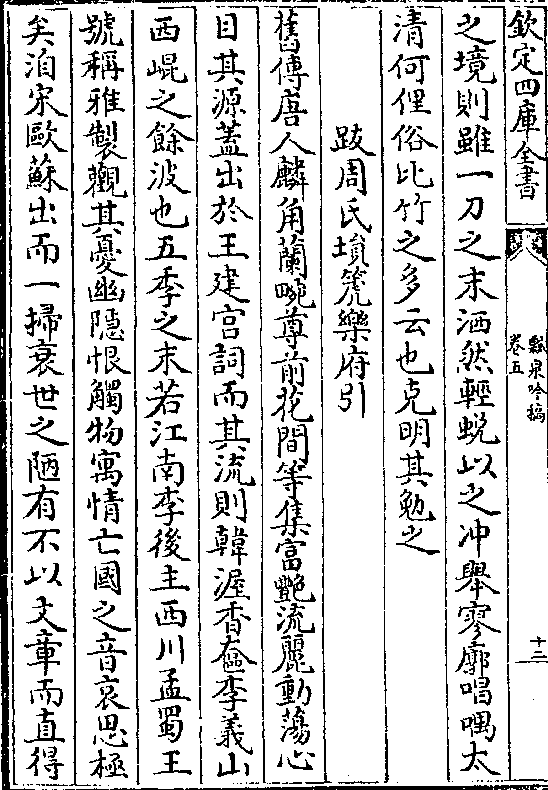 欽定四庫全書
瓢泉吟稿
卷五
十二
之境則雖一刀之末洒然輕蛻以之冲舉寥廓唱喁太
清何俚俗比竹之多云也克明其勉之
跋周氏塤篪樂府引
舊傳唐人麟角蘭畹尊前花間等集富艶流麗動蕩心
目其源蓋出於王建宫詞而其流則韓渥香奩李義山
西崐之餘波也五季之末若江南李後主西川孟蜀王
號稱雅製觀其憂幽隱恨觸物寓情亡國之音哀思極
矣洎宋歐蘇出而一掃衰世之陋有不以文章而直得